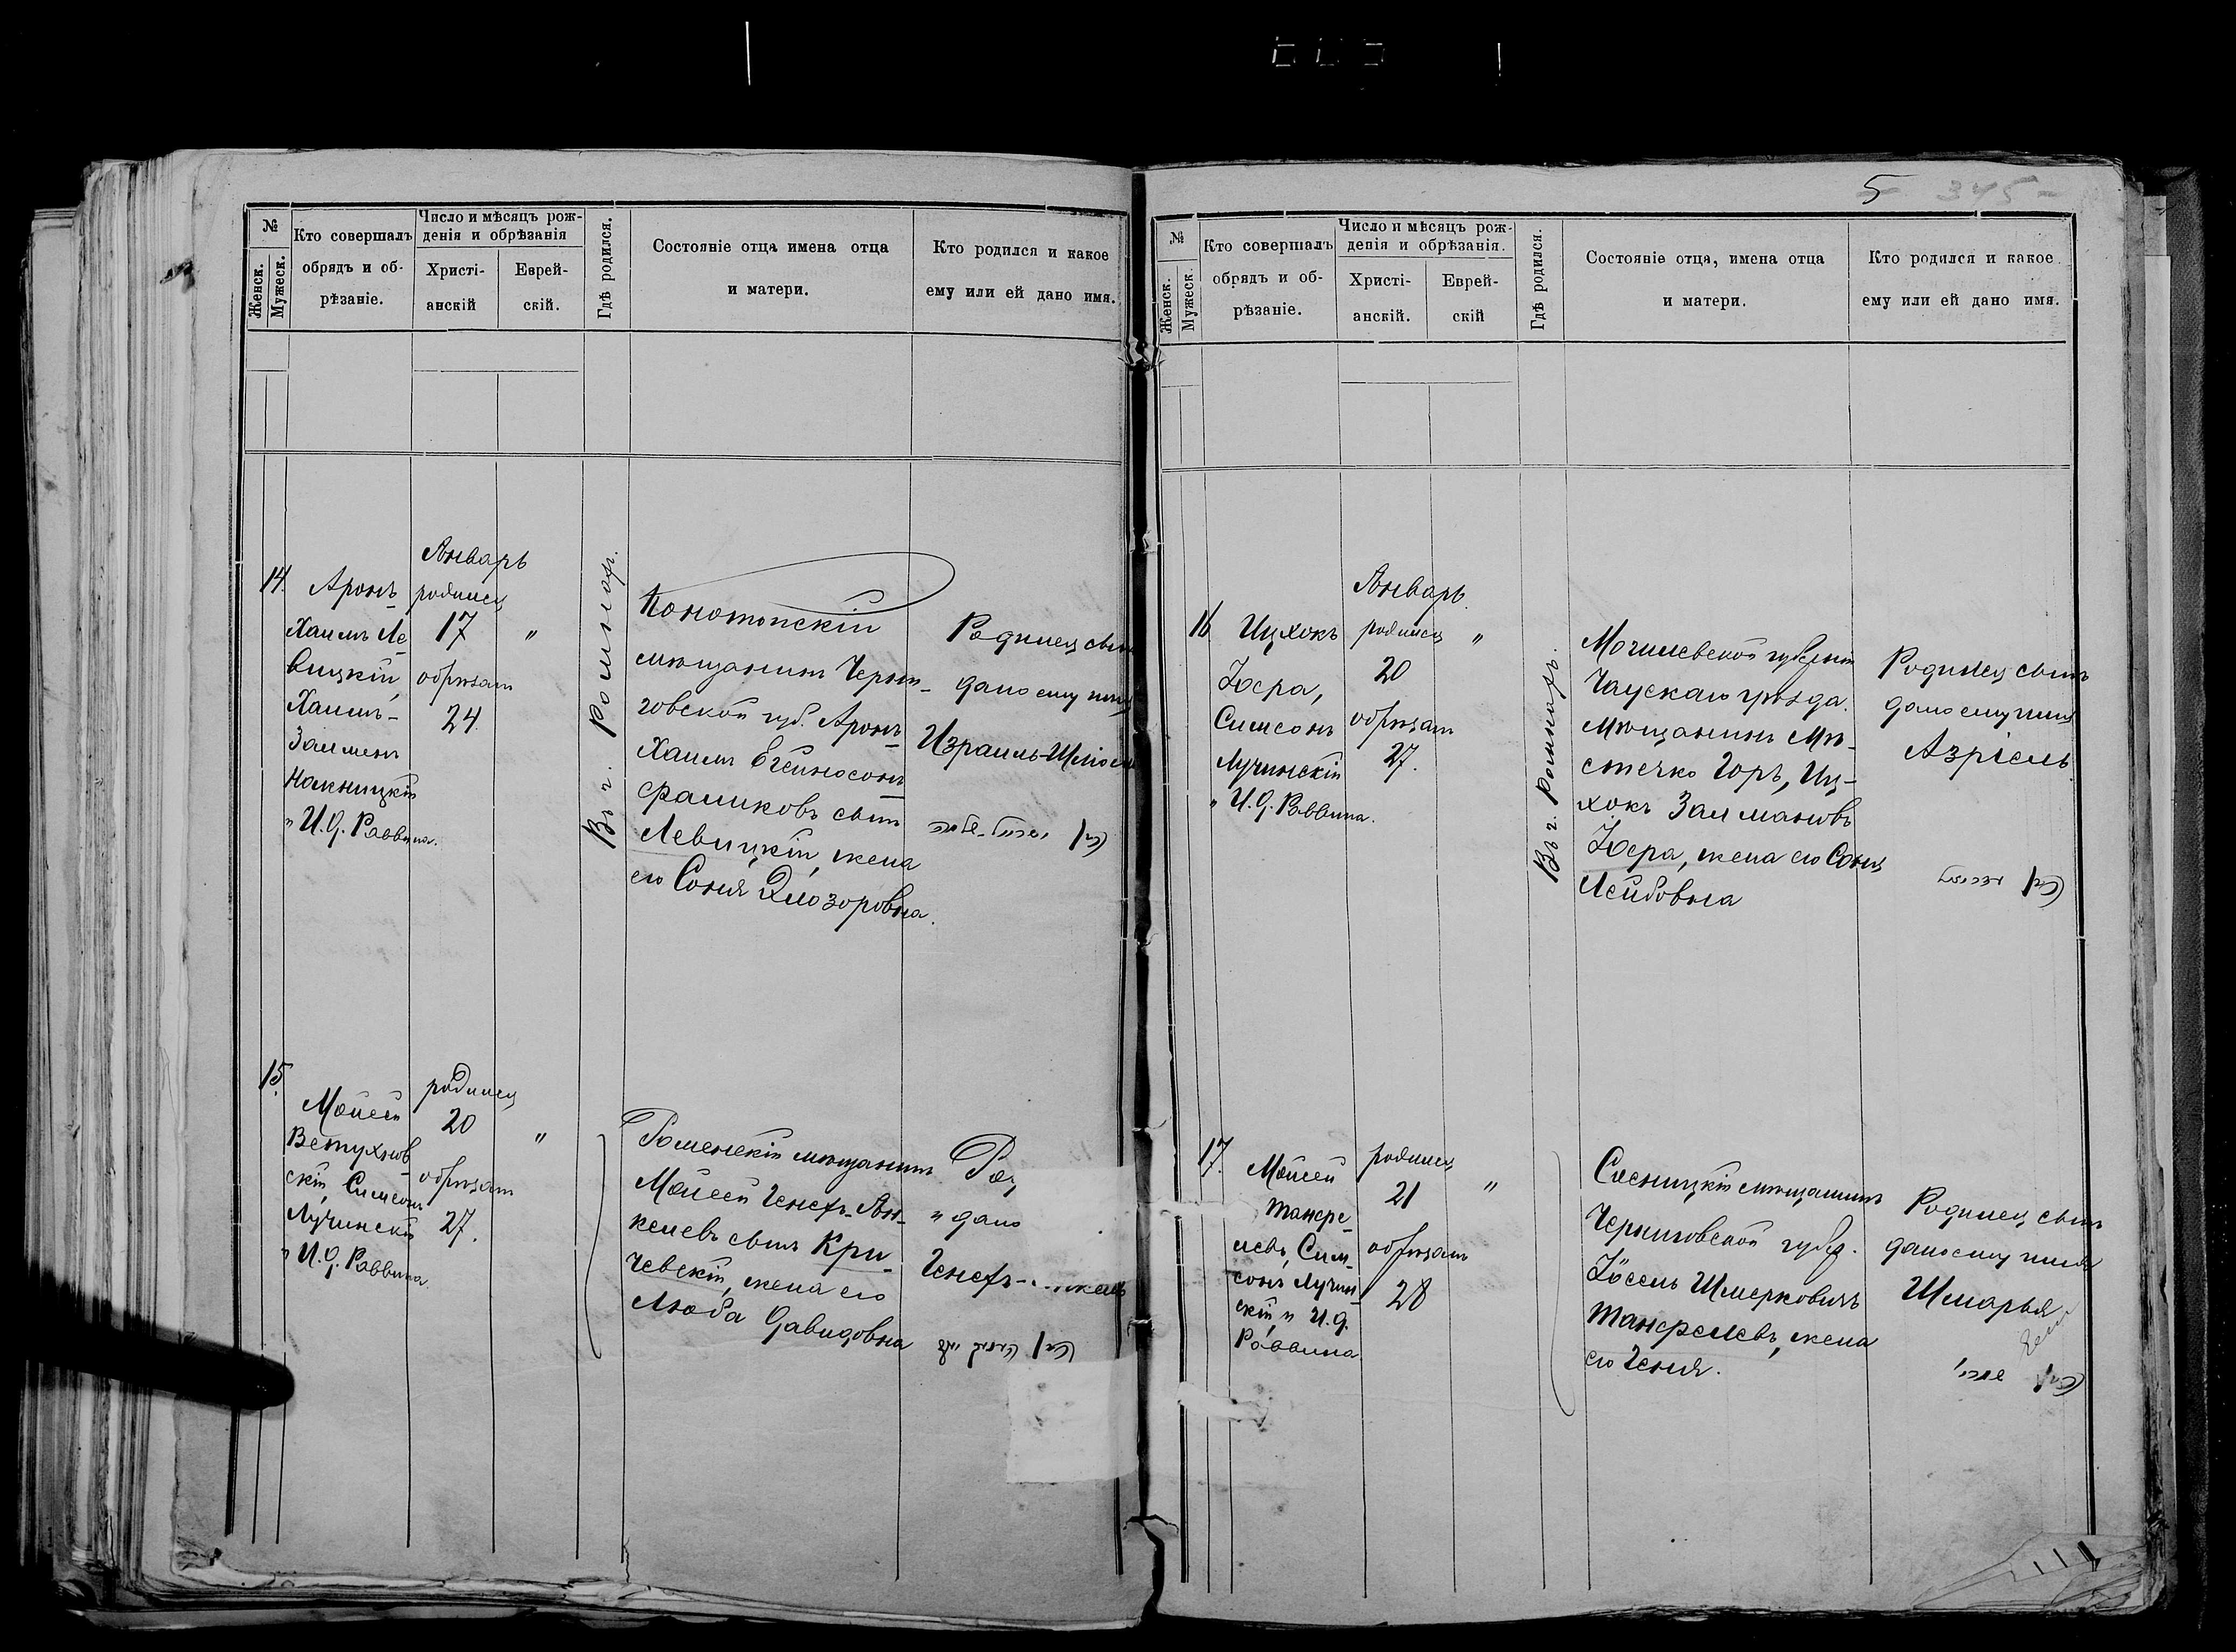 №
Женск.
Мужеск.
Кто совершалъ
обрядъ и об-
рѣзаніе.
Число и мѣсяцъ рож-
денія и обрѣзанія
Христі-
анскій
Еврей-
скій.
Гдѣ родился.
Состояніе отца имена отца
и матери.
Кто родился и какое
ему или ей дано имя.
14.
Аронъ
Хаимъ Ле-
вицкій,
Хаимъ-
Залменъ
" И. д. Раввина.
Январь
родился
17
обрѣзанъ
24.
"
Въ г. Ромнахъ.
Конотопскій
мѣщанинъ Черни-
говской губ. Аронъ-
Хаимъ
сынъ
Левицкій, жена
его Соня
Родился сынъ
дано ему имя
Израиль-
15.
Моисей
скій, Симсонъ
Лучинскій
" И. д. Раввина
родился
20
обрѣзанъ
27.
"
Роменскій мѣщанинъ
Моисей Генехъ-Ян-
келевъ сынъ Кри-
чевскій, жена его
Люба Давидовна
Род
" дано
Генехъ-
5
345
№
Женск.
Мужеск.
Кто совершалъ
обрядъ и об-
рѣзаніе.
Число и мѣсяцъ рож-
денія и обрѣзанія.
Христі-
анскій.
Еврей-
скій
Гдѣ родился.
Состояніе отца, имена отца
и матери.
Кто родился и какое
ему или ей дано имя.
16
Ицхокъ
Симсонъ
Лучинскій
" И. д. Раввина.
Январь.
родился
20
обрѣзанъ
27.
"
Въ г. Ромнахъ.
Могилевской губерніи
Чаускаго уѣзда
мѣщанинъ мѣ-
стечко Горъ, Иц-
хокъ Залмановъ
жена его Соня
Лейбовна
Родился сынъ
дано ему имя
Азріель.
17.
Моисей
Симсонъ Лучин-
скій, " И. д.
Раввина
родился
21
обрѣзанъ
28
"
Сосницкій мѣщанинъ
Черниговской губер.
Іосель Шмерковичъ
жена
его Геня.
Родился сынъ
дано ему имя
Шмарья